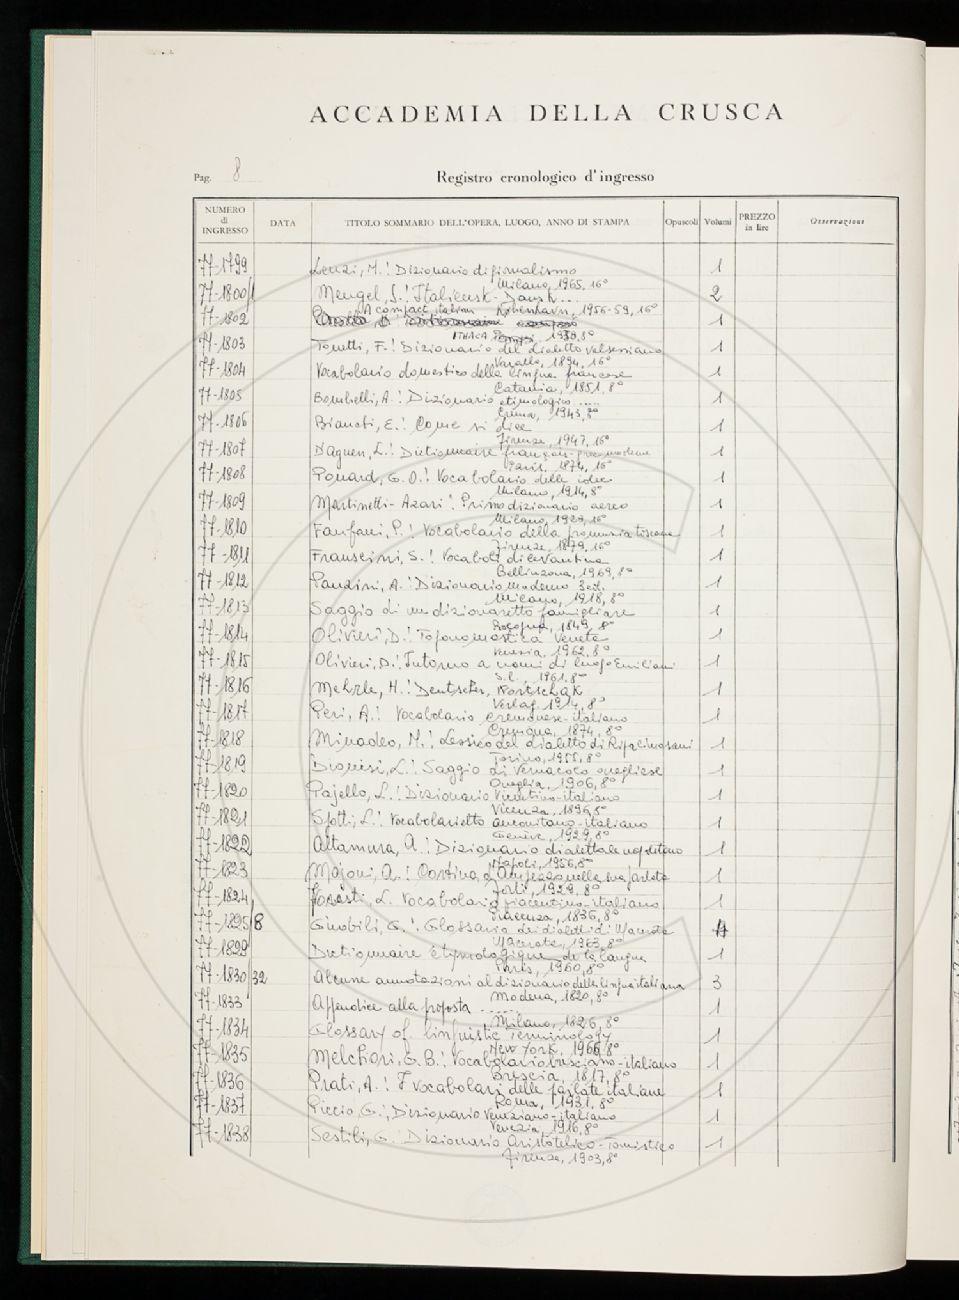 ACCADEMIA DELLA CRUSCA
Pag. 8
Registro cronologico d'ingresso
NUMERO di INGRESSO DATA TITOLO SOMMARIO DELL'OPERA, LUOGO, ANNO DI STAMPA Opuscoli Volumi PREZZO in lire Osservazioni
77-1799 Lenzi, M.: Dizionario di giornalismo 1
Milano, 1965, 16°
77-1800/1 Mengel, S.: Italiensk-Dansk... 2
København, 1956-59, 16°
77-1802 A compact italian 1
ITHACA 1959, 8°
77-1803 Tonetti, F.: Dizionario del dialetto valsesiano 1
Varallo, 1894, 16°
77-1804 Vocabolario domestico della lingua francese 1
Catania, 1851, 8°
77-1805 Bombelli, A.: Dizionario etimologico ..... 1
Crema, 1943, 8°
77-1806 Bianchi, E.: Come si dice 1
Firenze, 1947, 16°
77-1807 D'Agnen, L.: Dictionnaire français-grec moderne 1
Paris, 1874, 16°
77-1808 Ponard, G.O.: Vocabolario delle idee 1
Milano, 1914, 8°
77-1809 Martinetti-Azari: Primo dizionario aereo 1
Milano, 1929, 16°
77-1810 Fanfani, P.: Vocabolario della pronunzia toscana 1
Firenze, 1879, 16°
77-1811 Franscini, S.: Vocaboli di Levantina 1
Bellinzona, 1969, 8°
77-1812 Panzini, A.: Dizionario moderno 3ed. 1
Milano, 1918, 8°
77-1813 Saggio di un dizionaretto famigliare 1
Bologna, 1849, 8°
77-1814 Olivieri, D.: Toponomastica Veneta 1
Venezia, 1962, 8°
77-1815 Olivieri, D.: Intorno a nomi di luogo Emiliani 1
s.l., 1961, 8°
77-1816 Mehrle, H.: Deutscher, Wortschak 1
Verlag. 1914, 8°
77-1817 Peri, A.: Vocabolario cremonese-italiano 1
Cremona, 1874, 8°
77-1818 Minadeo, M.: Lessico del dialetto di Ripalimosani 1
Torino, 1955, 8°
77-1819 Dionisi, L.: Saggio di Vernacolo onegliese 1
Oneglia, 1906, 8°
77-1820 Pajello, L.: Dizionario Vicentino-italiano 1
Vicenza, 1896, 8°
77-1821 Spotti, L.: Vocabolarietto anconitano-italiano 1
Genève, 1929, 8°
77-1822 Altamura, A.: Dizionario dialettale napoletano 1
Napoli, 1956, 8°
77-1823 Majoni, A.: Cortina d'Ampezzo nella sua parlata 1
Forlì, 1929, 8°
77-1824 Foresti, L. Vocabolario piacentino-italiano 1
Piacenza, 1836, 8°
77-1825/8 Ginobili, G.: Glossario dei dialetti di Macerata 4
Macerata, 1963, 8°
77-1829 Dictionnaire étymologique de la langue 1
Paris, 1960, 8°
77-1830/32 Alcune annotazioni al dizionario della lingua italiana 3
Modena, 1820, 8°
77-1833 Appendice alla proposta ...... 1
Milano, 1826, 8°
77-1834 Glossary of linguistic terminology 1
New York, 1966, 8°
77-1835 Melchiori, G.B.: Vocabolario bresciano-italiano 1
Brescia, 1817, 8°
77-1836 Prati, A.: I vocabolari delle parlate italiane 1
Roma, 1931, 8°
77-1837 Piccio, G.: Dizionario veneziano-italiano 1
Venezia, 1916, 8°
77-1838 Sestili, G. Dizionario Aristotelico-Tomistico 1
Firenze, 1903, 8°